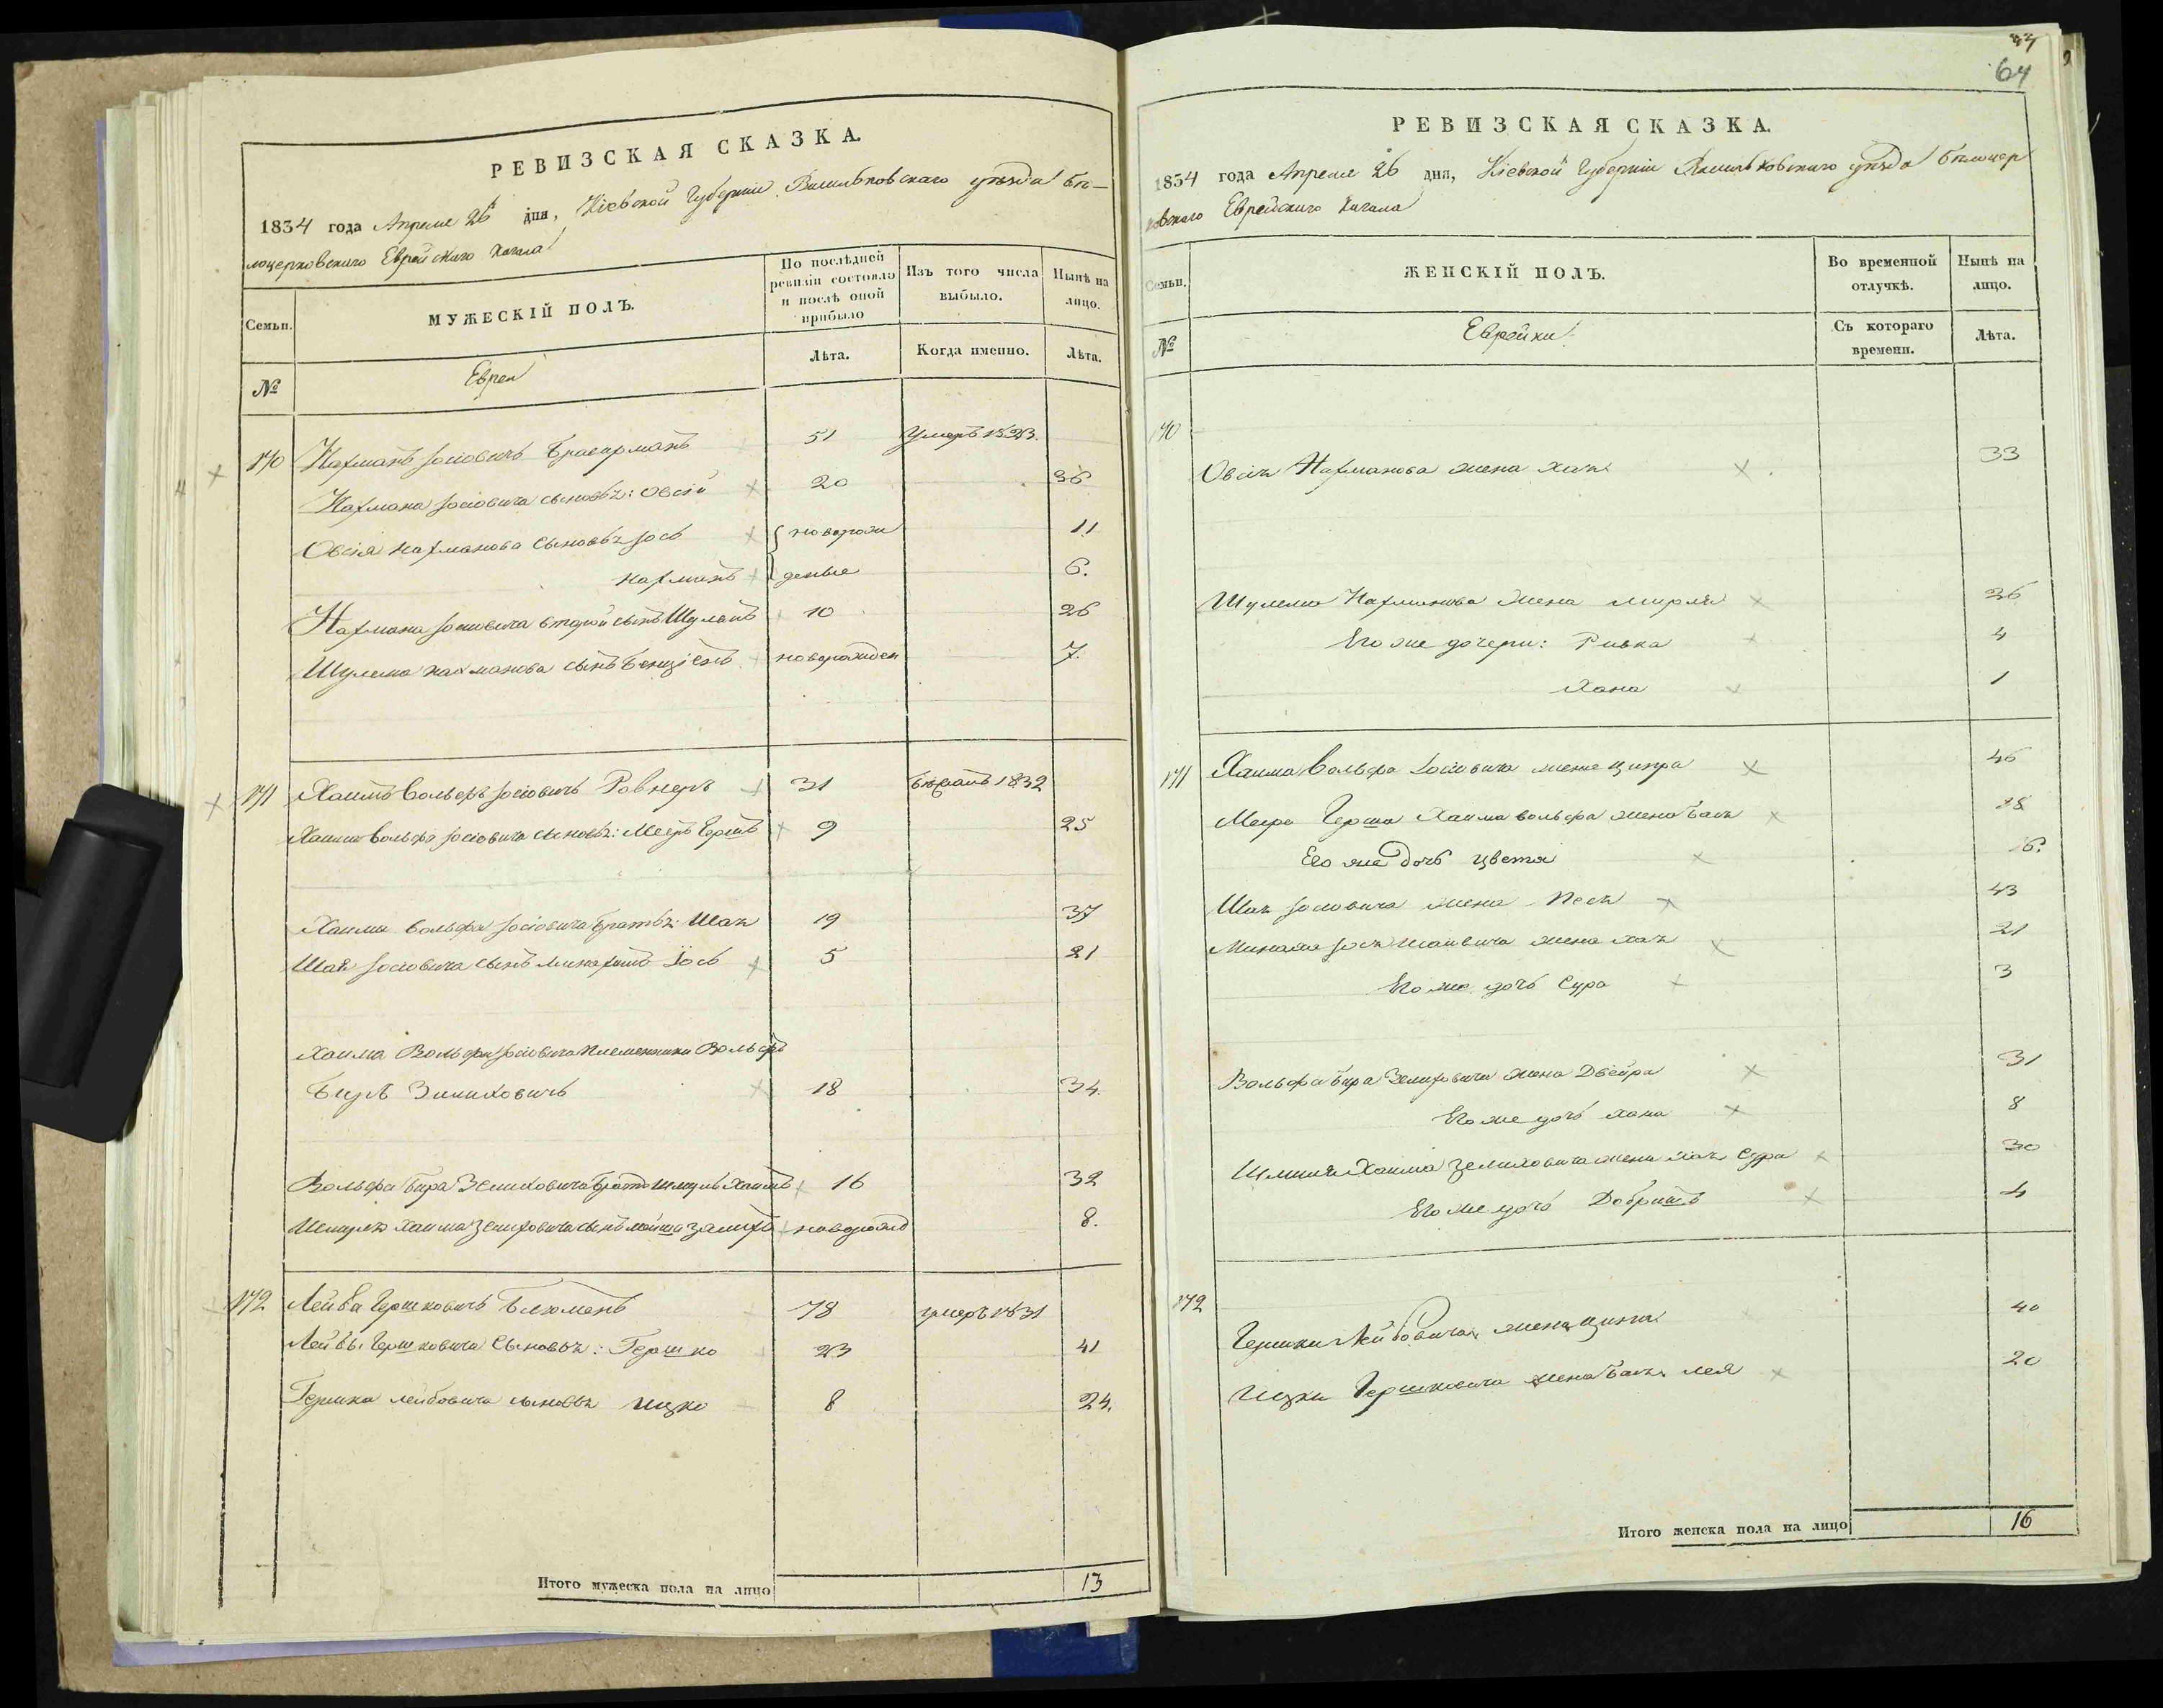 РЕВИЗСКАЯ СКАЗКА.
1834 года Апреля 26 дня, Кіевской Губерніи Васильковскаго уѣзда Бѣ-
лоцерковскаго Еврейскаго Кагала
Семьи.
МУЖЕСКІЙ ПОЛЪ.
По послѣдней ревизіи состояло и послѣ оной прибыло
Изъ того числа выбыло.
Нынѣ на лицо.
№
Евреи
Лѣта.
Когда именно.
Лѣта.
170 Нахманъ Іосіовичъ 51 Умеръ 1823.
Нахмана Іосіовича сыновъя: Овсій 20 36
Овсія Нахманова сыновъя Іось { новорож 11
Нахманъ денные 6.
Нахмана Іосіовича второй сынъ Шулимъ 10 26
Шулема Нахманова сынъ Бенціенъ новорожден 7.
171 Хаимъ Вольфъ Іосіовичъ Ровнеръ 31 Бѣжалъ 1832
Хаима Вольфа Іосіовича сыновъя: Мееръ Гершъ 9 25
Хаима Вольфа Іосіовича братъя: Шая 19 37
Шая Іосіовича сынъ Минахимъ Іось 5 21
Хаима Вольфа Іосіовича племянники Вольфъ
Беръ Зилиховичъ 18 34.
Вольфа Бера Зелиховича братъ Шмуль Хаимъ 16 32
Шмуля Хаима Зелиховича сынъ Мойша Зелихъ новорожд 8.
172 Лейба Гершковичъ Блюманъ 78 умеръ 1831
Лейбы Гершковича сыновья: Гершко 23 41
Гершка Лейбовича сыновъя Ицко 8 24.
Итого мужеска пола на лицо 13
64
РЕВИЗСКАЯ СКАЗКА.
1834 года Апреля 26 дня, Кіевской Губерніи Васильковскаго уѣзда Бѣлоцер
ковскаго Еврейскаго Кагала
Семьи.
ЖЕНСКІЙ ПОЛЪ.
Во временной отлучкѣ.
Нынѣ на лицо.
№
Еврейки
Съ котораго времени.
Лѣта.
170
Овсія Нахманова жена Хая 33
Шулема Нахманова жена Мирля 26
Его же дочери: Ривка 4
Хана 1
171 Хаима Вольфа Іосіовича жена Ципра 46
Меера Герша Хаима Вольфа жена Бася 28
Его же дочь Цветя 6.
Шая Іосіовича жена Песя 43
Минахма Іося Шаивича жена Хая 21
Его же дочь Сура 3
Вольфа Бера Зелиховича жена Двейра 31
Его же дочь Хана 8
Шмиля Хаима Зелиховича жена Хая Сура 30
Его же дочь Добришъ 4
172
Гершки Лейбовича жена 40
Ицки Гершковича жена Бася Лея 20
Итого женска пола на лицо 16